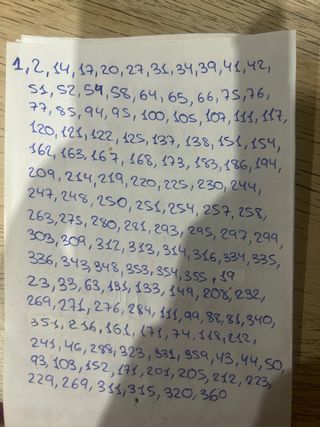 1,2,14,17,20,27,31,34,39,41,42,
51,52,54,58,64,65,66,75,76,
77,85,94,95,100,105,107,111,117,
120,121,122,125,137,138,151,154,
162,163,167,168,173,183,186,194,
209,214,219,220,225,230,244,
247,248,250,251,254,257,258,
263,275,280,281,293,295,297,299,
303,309,312,313,314,316,334,335,
336,343,348,353,354,355,19
23,33,63,131,133,149,208,232,
269,271,276,284,111,99,88,81,340,
351,216,161,171,74,118,212,
241,46,288,323,331,359,43,44,50,
93,103,152,171,201,205,212,223,
229,269,311,315,320,360